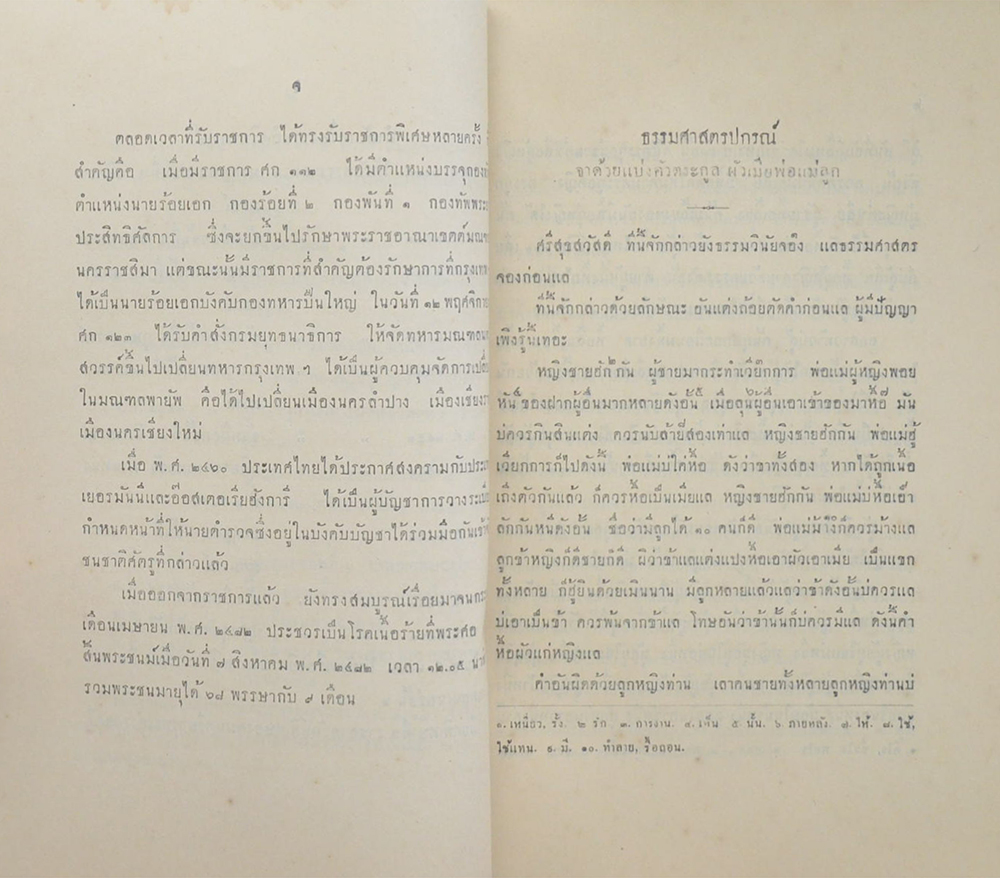 จ
ตลอดเวลาที่รับราชการ ได้ทรงรับราชการพิเศษหลายครั้ง
สำคัญคือ เมื่อมีราชการ ศก ๑๑๒ ได้มีตำแหน่งบรรจุกอง
ตำแหน่งนายร้อยเอก กองร้อยที่ ๒ กองพันที่ ๑ กองทัพพระ
ประสิทธิศัลการ ซึ่งจะยกขึ้นไปรักษาพระราชอาณาเขตต์มณฑ
นครราชสิมา แต่ขณะนั้นมีราชการที่สำคัญต้องรักษาการที่กรุงเทพ
ได้เป็นนายร้อยเอกบังคับกองทหารปืนใหญ่ ในวันที่ ๑๒ พฤศจิกา
ศก ๑๒๓ ได้รับคำสั่งกรมยุทธนาธิการ ให้จัดทหารมณฑลนค
สวรรค์ขึ้นไปเปลี่ยนทหารกรุงเทพ ฯ ได้เป็นผู้ควบคุมจัดการเปลี่
ในมณฑลพายัพ คือได้ไปเปลี่ยนเมืองนครลำปาง เมืองเชียงรา
เมืองนครเชียงใหม่
เมื่อ พ.ศ. ๒๔๖๐ ประเทศไทยได้ประกาศสงครามกับประเ
เยอรมันนีและอ๊อสเตอเรียฮังการี ได้เป็นผู้บัญชาการวางระเบี
กำหนดหน้าที่ให้นายตำรวจซึ่งอยู่ในบังคับบัญชาได้ร่วมมือกันเข้าจั
ชนชาติศัตรูที่กล่าวแล้ว
เมื่อออกจากราชการแล้ว ยังทรงสมบูรณ์เรื่อยมาจนกระ
เดือนเมษายน พ.ศ. ๒๔๘๒ ประชวรเป็นโรคเนื้อร้ายที่พระศอ
สิ้นพระชนม์เมื่อวันที่ ๗ สิงหาคม พ.ศ. ๒๔๘๒ เวลา ๑๒.๐๕ นาฬิ
รวมพระชนมายุได้ ๖๘ พรรษากับ ๙ เดือน
ธรรมศาสตรปกรณ์
จาด้วยแบ่งคัวตระกูล ผัวเมียพ่อแม่ลูก
ศรีสุขสวัสดี ทีนี้จักกล่าวยังธรรมวินัยจอง แลธรรมศาสตร
จองก่อนแล
ทีนี้จักกล่าวด้วยลักษณะ อันแต่งถ้อยคัดคำก่อนแล ผู้มีปัญญา
เพิงรู้นั้นเทอะ
หญิงชายฮัก๒กัน ผู้ชายมากระทำเวียกการ พ่อแม่ผู้หญิงพอย
หัน๔ของฝากผู้อื่นมากหลายดังอั้น๕ เมื่อลุน๖ผู้อื่นเอาเข้าของมาหื้อ๗ มัน
บ่ควรกินสินแต่ง ควรนับล้าย๘สองเท่าแล หญิงชายฮักกัน พ่อแม่ฮู้
เวียกการก็ไปดังนี้ พ่อแม่บ่ใค่หื้อ ดังว่าขาทั้งสอง หากได้ถูกเนื้อ
เกิ่งตัวกันแล้ว ก็ควรหื้อเป็นเมียแล หญิงชายฮักกัน พ่อแม่บ่หื้อเอา
ลักกันหนีดังอั้น ชื่อว่ามีลูกได้ ๑๐ คนก็ดี พ่อแม่ม้าง๑๐ก็ควรม้างแล
ลูกข้าหญิงก็ดีชายก็ดี ผิว่าข้าแลแต่งแปงหื้อเอาผัวเอาเมีย เป็นแขก
ทั้งหลาย ก็ฮู้ยินด้วยเมินนาน มีลูกหลายแล้วแลว่าข้าดังอั้นบ่ควรแล
บ่เอาเป็นข้า ควรพ้นจากข้าแล โทษอันว่าข้านั้นก็บ่ควรมีแล ดังนี้คำ
หื้อผัวแก่หญิงแล
คำอันผิดด้วยลูกหญิงท่าน เลาคนชายทั้งหลายลูกหญิงท่านบ่
๑. เหนี่ยว, รั้ง. ๒ รัก ๓. การงาน. ๔. เห็น ๕ นั้น. ๖ ภายหลัง. ๗. ให้. ๘. ใช้,
ใช้แทน. ๙. มี. ๑๐. ทำลาย, รื้อถอน.